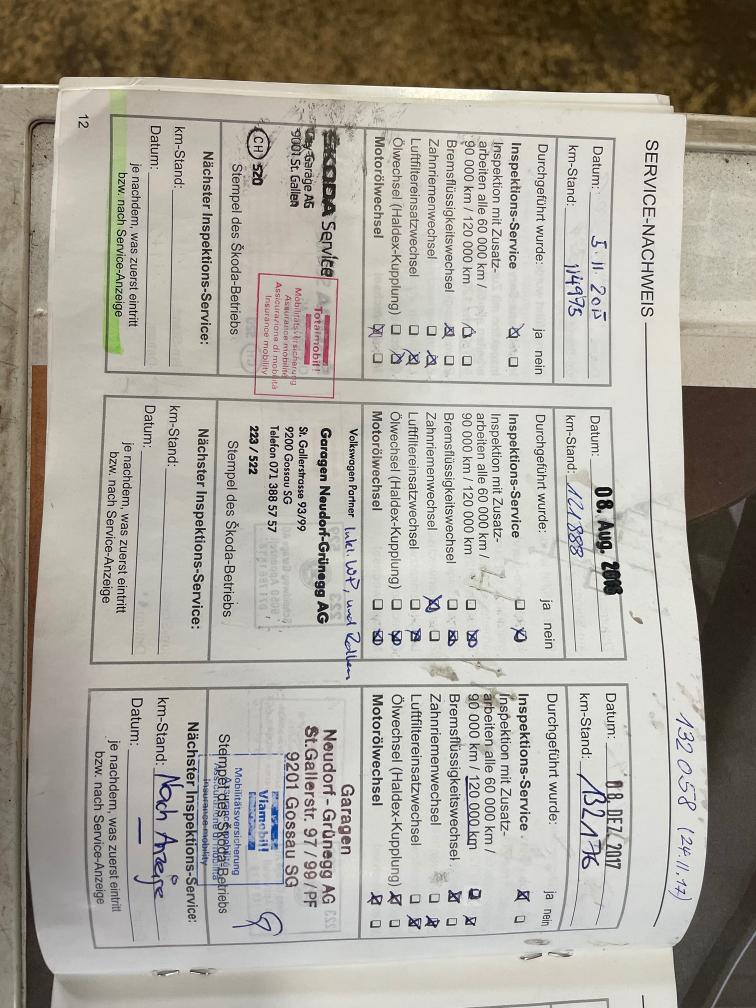 SERVICE-NACHWEIS
132 058 (24.11.17)
Datum: 5.11.201
km-Stand: 114975
Durchgeführt wurde: ja nein
Inspektions-Service
Inspektion mit Zusatz-
arbeiten alle 60 000 km /
90 000 km / 120 000 km
Bremsflüssigkeitswechsel
Zahnriemenwechsel
Luftfiltereinsatzwechsel
Ölwechsel (Haldex-Kupplung)
Motorölwechsel
ŠKODA Service
City-Garage AG
9001 St. Gallen
CH 520
Totalmobil!
Mobilitätsversicherung
Assurance mobilité
Assicurazione di mobilità
Insurance mobility
Stempel des Škoda-Betriebs
Nächster Inspektions-Service:
km-Stand:
Datum:
je nachdem, was zuerst eintritt
bzw. nach Service-Anzeige
Datum: 08. Aug. 2016
km-Stand: 121888
Durchgeführt wurde: ja nein
Inspektions-Service
Inspektion mit Zusatz-
arbeiten alle 60 000 km /
90 000 km / 120 000 km
Bremsflüssigkeitswechsel
Zahnriemenwechsel
Luftfiltereinsatzwechsel
Ölwechsel (Haldex-Kupplung)
Motorölwechsel
Inkl. WP, und Rollen
Volkswagen Partner
Garagen Neudorf-Grünegg AG
St. Gallerstrasse 93/99
9200 Gossau SG
Telefon 071 388 57 57
223 / 522
Stempel des Škoda-Betriebs
Nächster Inspektions-Service:
km-Stand:
Datum:
je nachdem, was zuerst eintritt
bzw. nach Service-Anzeige
Datum: 18. DEZ. 2017
km-Stand: 132176
Durchgeführt wurde: ja nein
Inspektions-Service
Inspektion mit Zusatz-
arbeiten alle 60 000 km /
90 000 km / 120 000 km
Bremsflüssigkeitswechsel
Zahnriemenwechsel
Luftfiltereinsatzwechsel
Ölwechsel (Haldex-Kupplung)
Motorölwechsel
Garagen
Neudorf - Grünegg AG
St.Gallerstr. 97 / 99 / PF
9201 Gossau SG
Viamobil!
Mobilitätsversicherung
Assurance mobilité
Insurance mobility
Stempel des Škoda-Betriebs
Nächster Inspektions-Service:
km-Stand: Nach Anzeige
Datum: —
je nachdem, was zuerst eintritt
bzw. nach Service-Anzeige
12